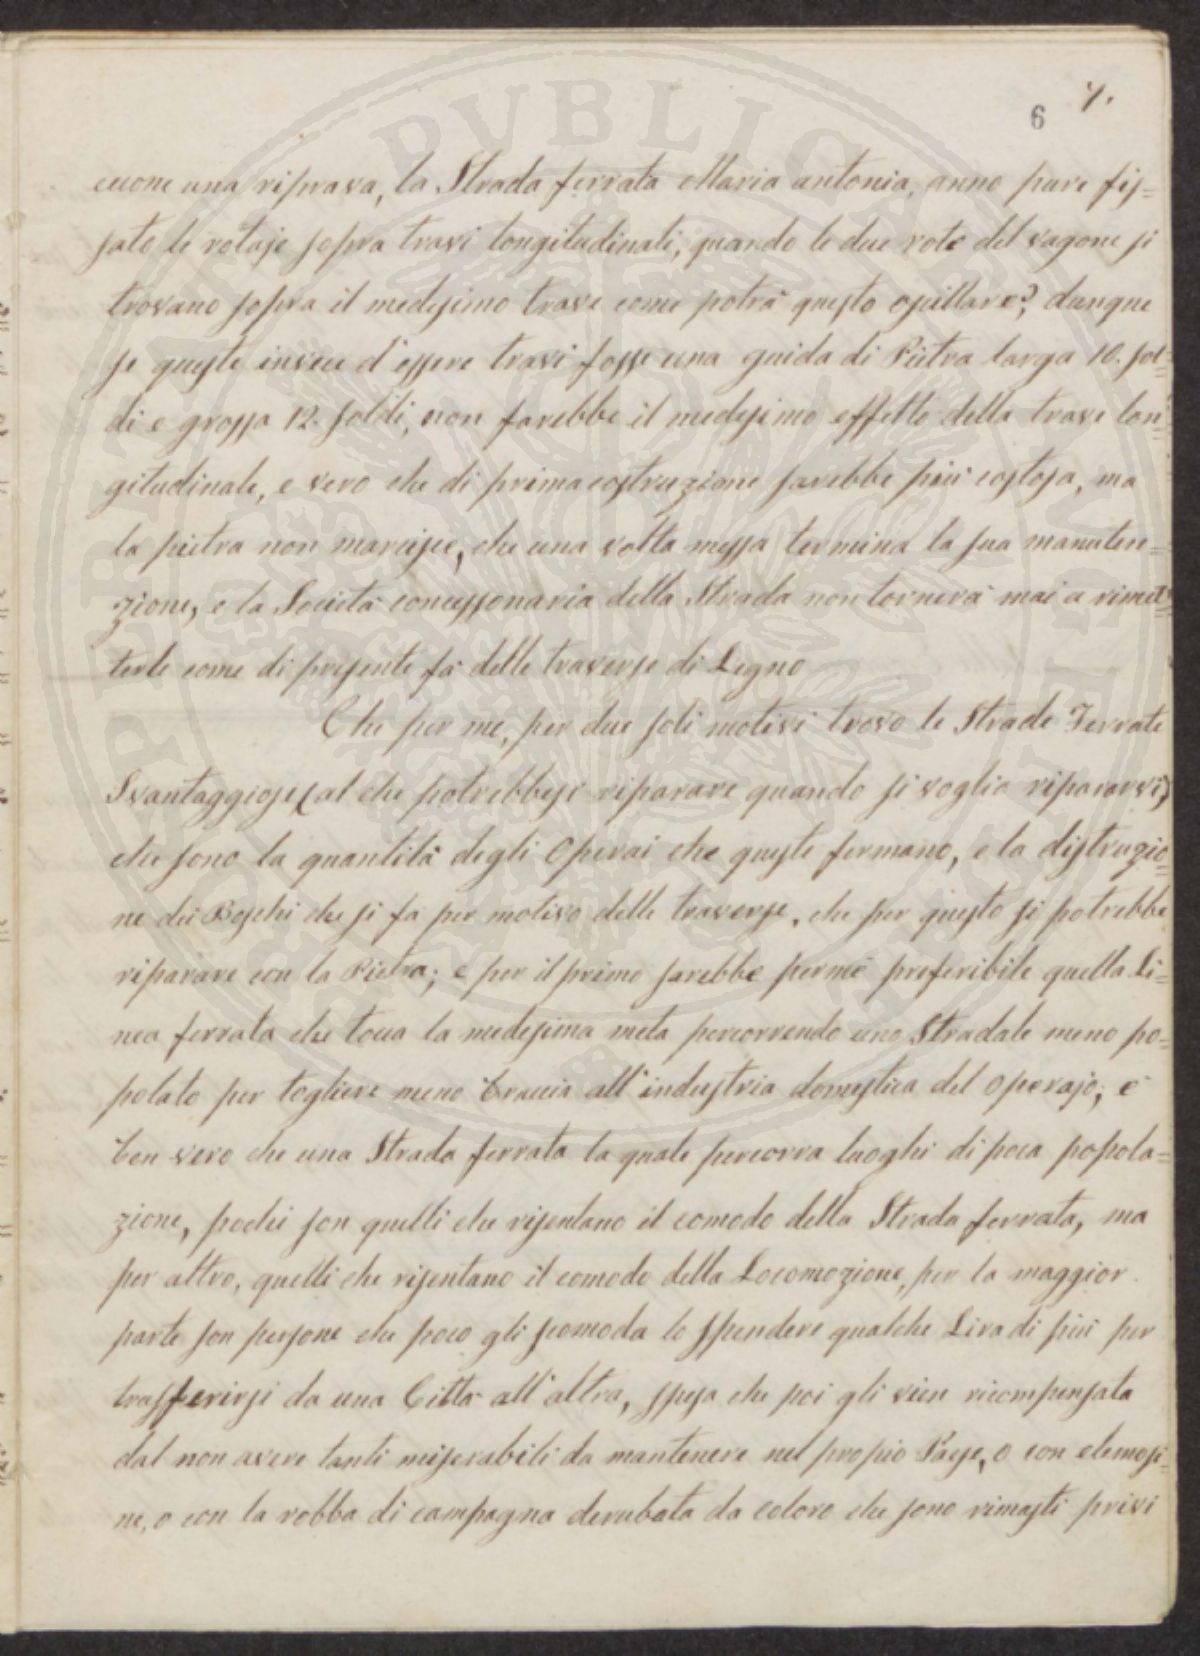 6 7.
eccone una riprova, la Strada ferrata Maria antonia, anno pure fis=
sato le rotaje sopra travi longitudinali, quando le due rote del vagone si
trovano sopra il medesimo trave come potrà questo oscillare?, dunque
se queste invece d'essere travi fosse una guida di Pietra larga 10. sol=
di e grossa 12. soldi, non farebbe il medesimo effetto della trave lon=
gitudinale, e vero che di prima costruzione sarebbe più costosa, ma
la pietra non marcisce, che una volta messa termina la sua manuten=
zione, e la Società concessonaria della Strada non tornerà mai a rimet=
terle come di presente fà delle traverse di Legno
Che per me, per due soli motivi trovo le Strade Ferrate
Svantaggiose (al che potrebbesi riparare quando si voglia ripararvi)
che sono la quantità degli Operai che queste fermano, e la distruzio=
ne dei Boschi che si fa per motivo delle traverse, che per questo si potrebbe
riparare con la Pietra; e per il primo sarebbe per me preferibile quella Li=
nea ferrata che tocca la medesima meta percorrendo uno Stradale meno po=
polato per togliere meno braccia all'industria domestica del Operajo; è
ben vero che una Strada ferrata la quale percorra luoghi di poca popola=
zione, pochi son quelli che risentano il comodo della Strada ferrata, ma
per altro, quelli che risentano il comodo della Locomozione, per la maggior
parte son persone che poco gli scomoda lo spendere qualche Lira di più per
trasferirsi da una Città all'altra, spesa che poi gli vien ricompensata
dal non avere tanti miserabili da mantenere nel propio Paese, o con elemosi=
ne, o con la robba di campagna derubata da coloro che sono rimasti privi